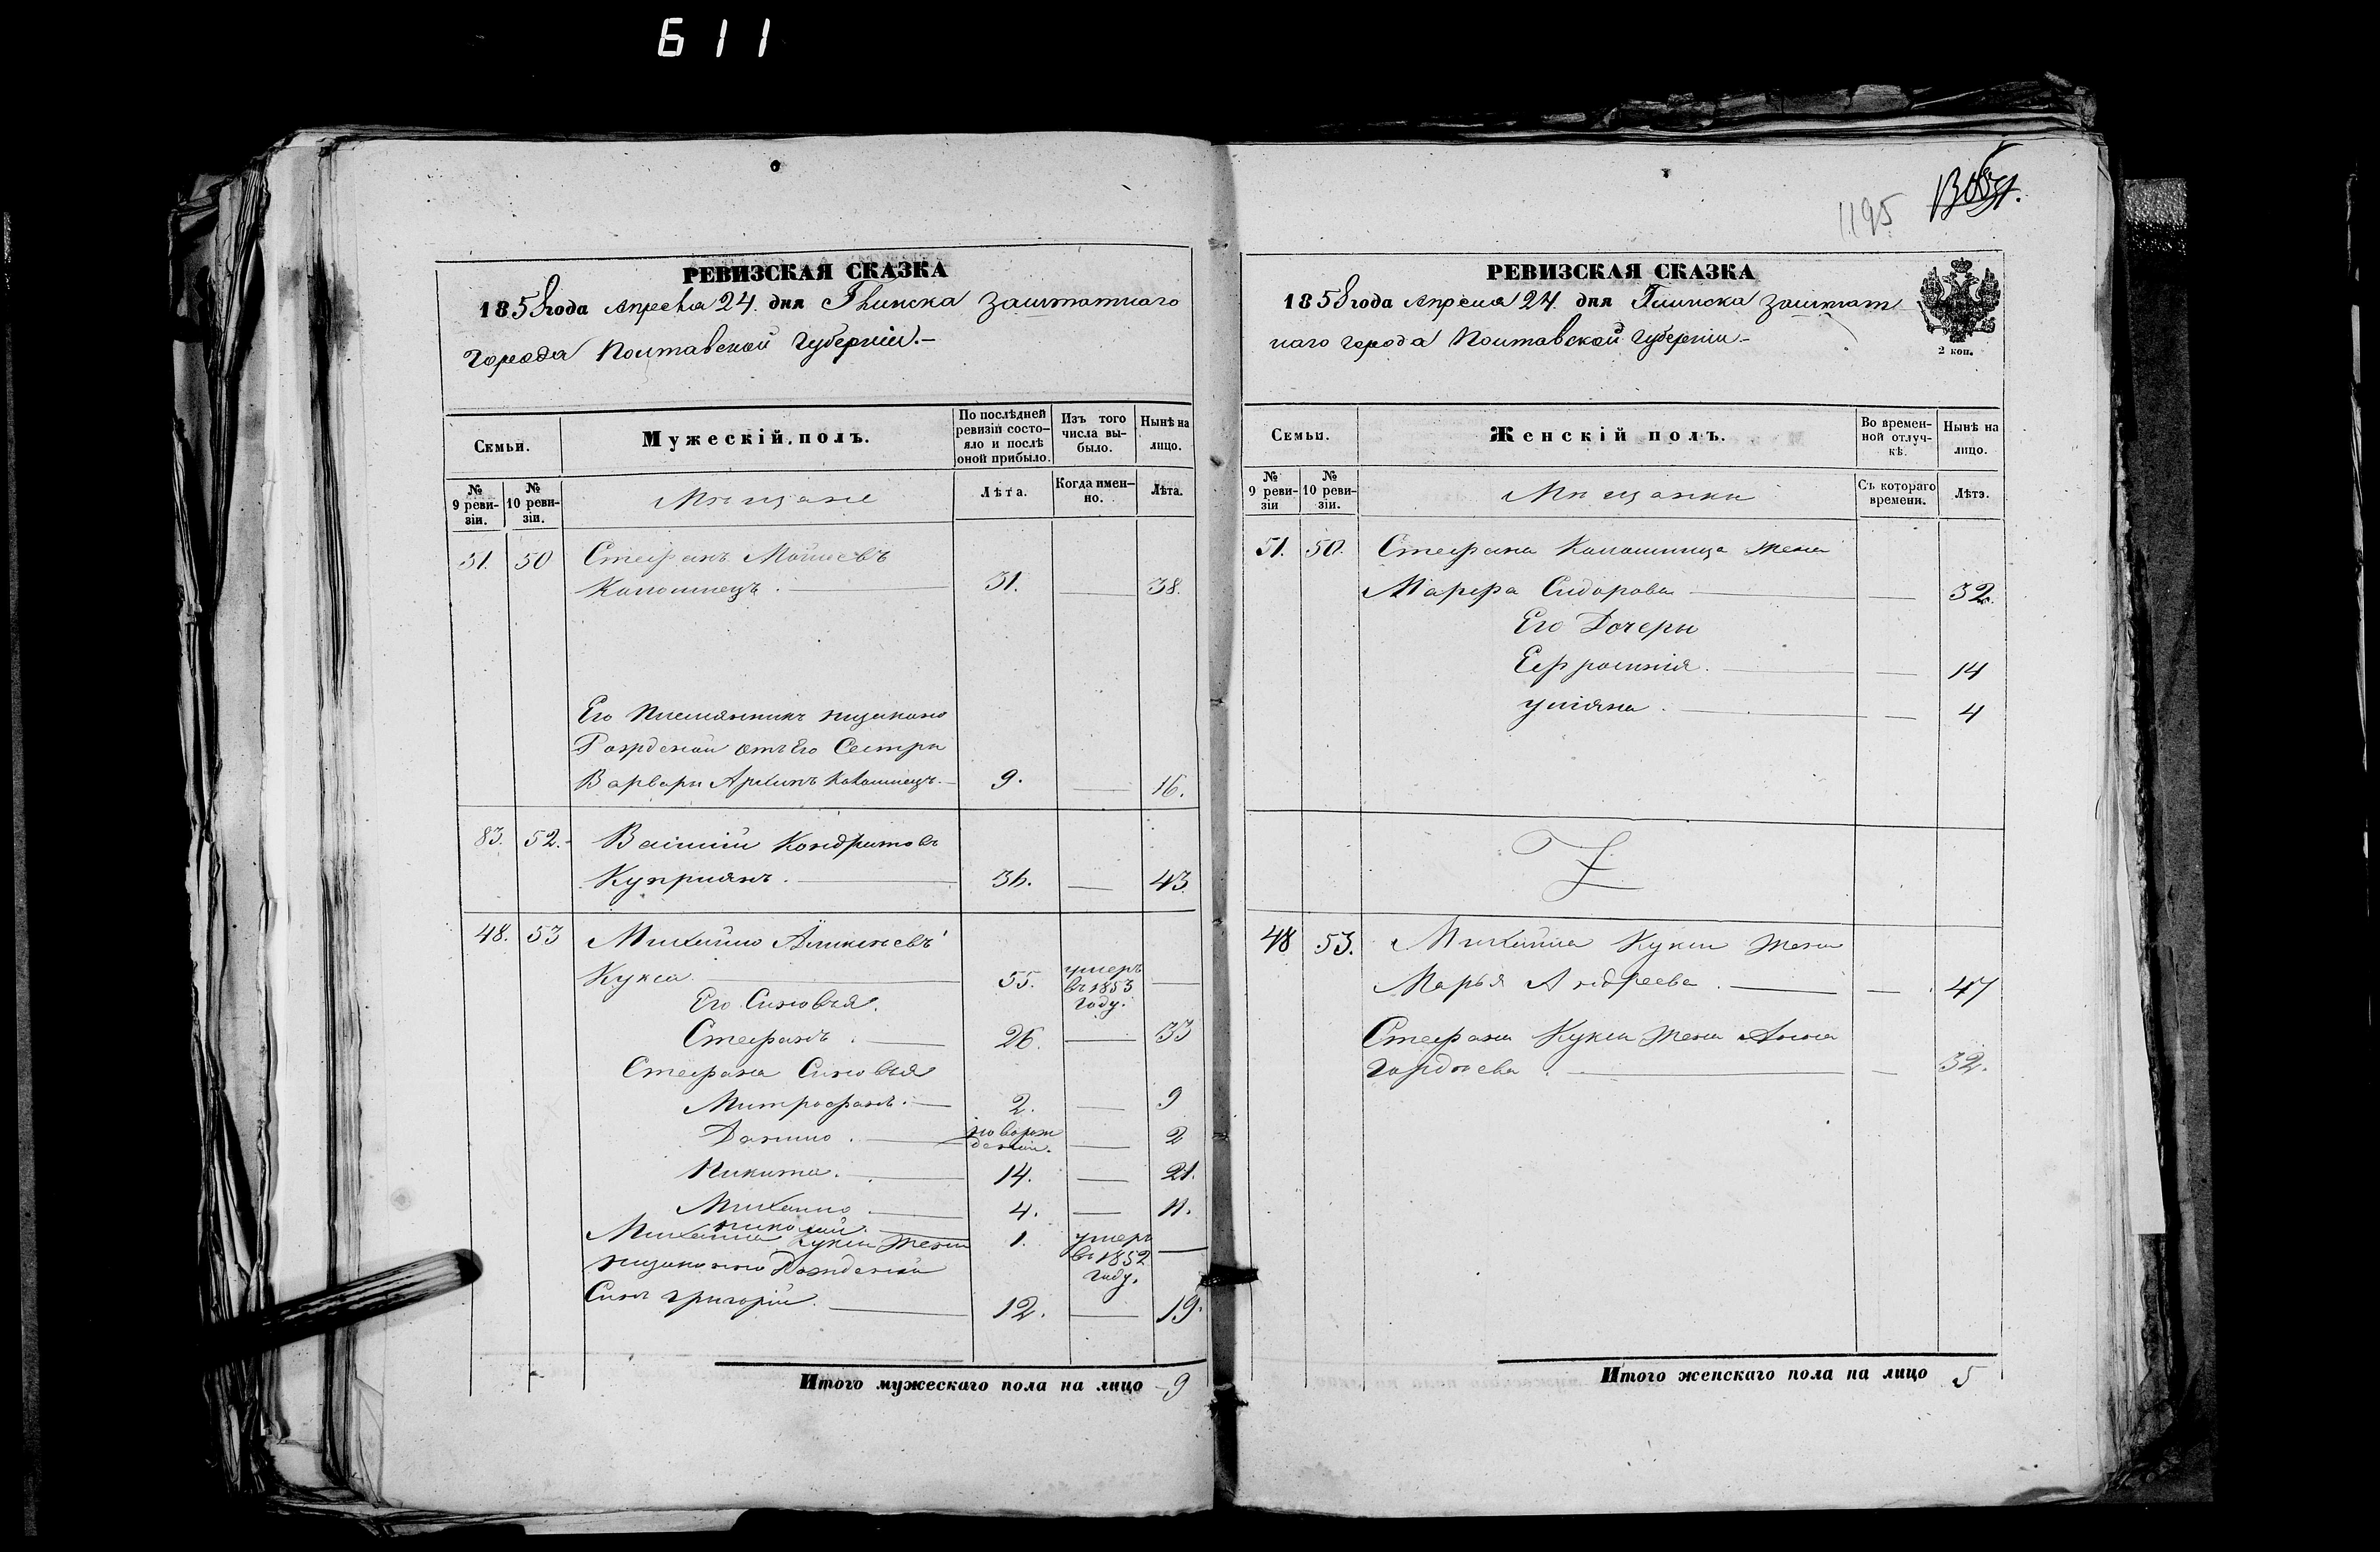 611
РЕВИЗСКАЯ СКАЗКА
1858 года Апреля 24. дня Глинска заштатнаго
города Полтавской губерніи.-
Семьи.
Мужескій полъ.
По послѣдней ревизіи состояло и послѣ оной прибыло.
Изъ того числа выбыло.
Нынѣ на лицо.
№ 9 ревизіи.
№ 10 ревизіи.
Мѣщане
Лѣта.
Когда именно.
Лѣта.
51. 50 Стефанъ
Коломіецъ. 31. — 38.
Его племянникъ незаконно
Рожденой отъ Его Сестры
Варвары Архипъ Коломіецъ.— 9. — 16.
83. 52. Василій Кондратовъ
Куприянъ. 36. — 43.
48. 53 Михайло
Кукса 55. умеръ въ 1853 году. —
Его Сыновья.
Стефанъ. 26. — 33
Стефана Сыновья
Митрофанъ. 2. — 9
Данило. новорожденій. — 2
Никита. 14. — 21.
Михайло 4. — 11.
Николай. 1. умеръ въ 1852 году. —
Михайла Куксы жены
незаконно Рожденой
Сынъ Григорій. 12. — 19.
Итого мужескаго пола на лицо 9
1195
РЕВИЗСКАЯ СКАЗКА
1858 года Апреля 24. дня Глинска заштат
наго города Полтавской губерніи-
2 коп.
Семьи.
Женскій полъ.
Во временной отлучкѣ.
Нынѣ на лицо.
№ 9 ревизіи
№ 10 ревизіи.
Мѣщанки
Съ котораго времени.
Лѣта.
51. 50. Стефана Коломійца жена
Марфа Сидорова — 32.
Его Дочеры
Ефросинія. — 14
Уліяна. — 4
48 53. Михайла Куксы жена
Марья Андреева. — 47
Стефана Куксы жена Анна
Гордѣева. — 32.
Итого женскаго пола на лицо 5